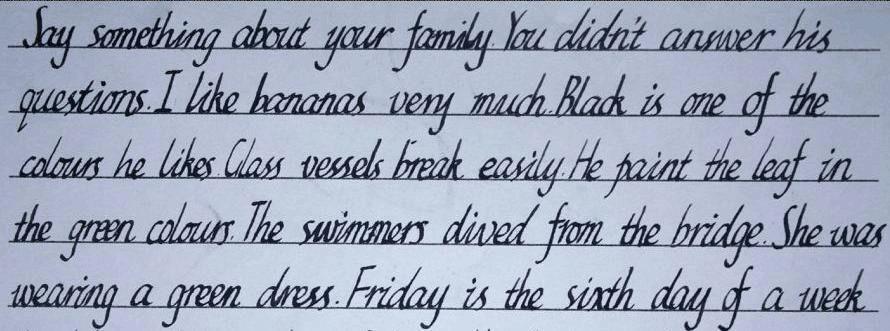 Say something about your family. You didn't answer his
questions. I like bananas very much. Black is one of the
colours he likes. Glass vessels break easily. He paint the leaf in
the green colours. The swimmers dived from the bridge. She was
wearing a green dress. Friday is the sixth day of a week